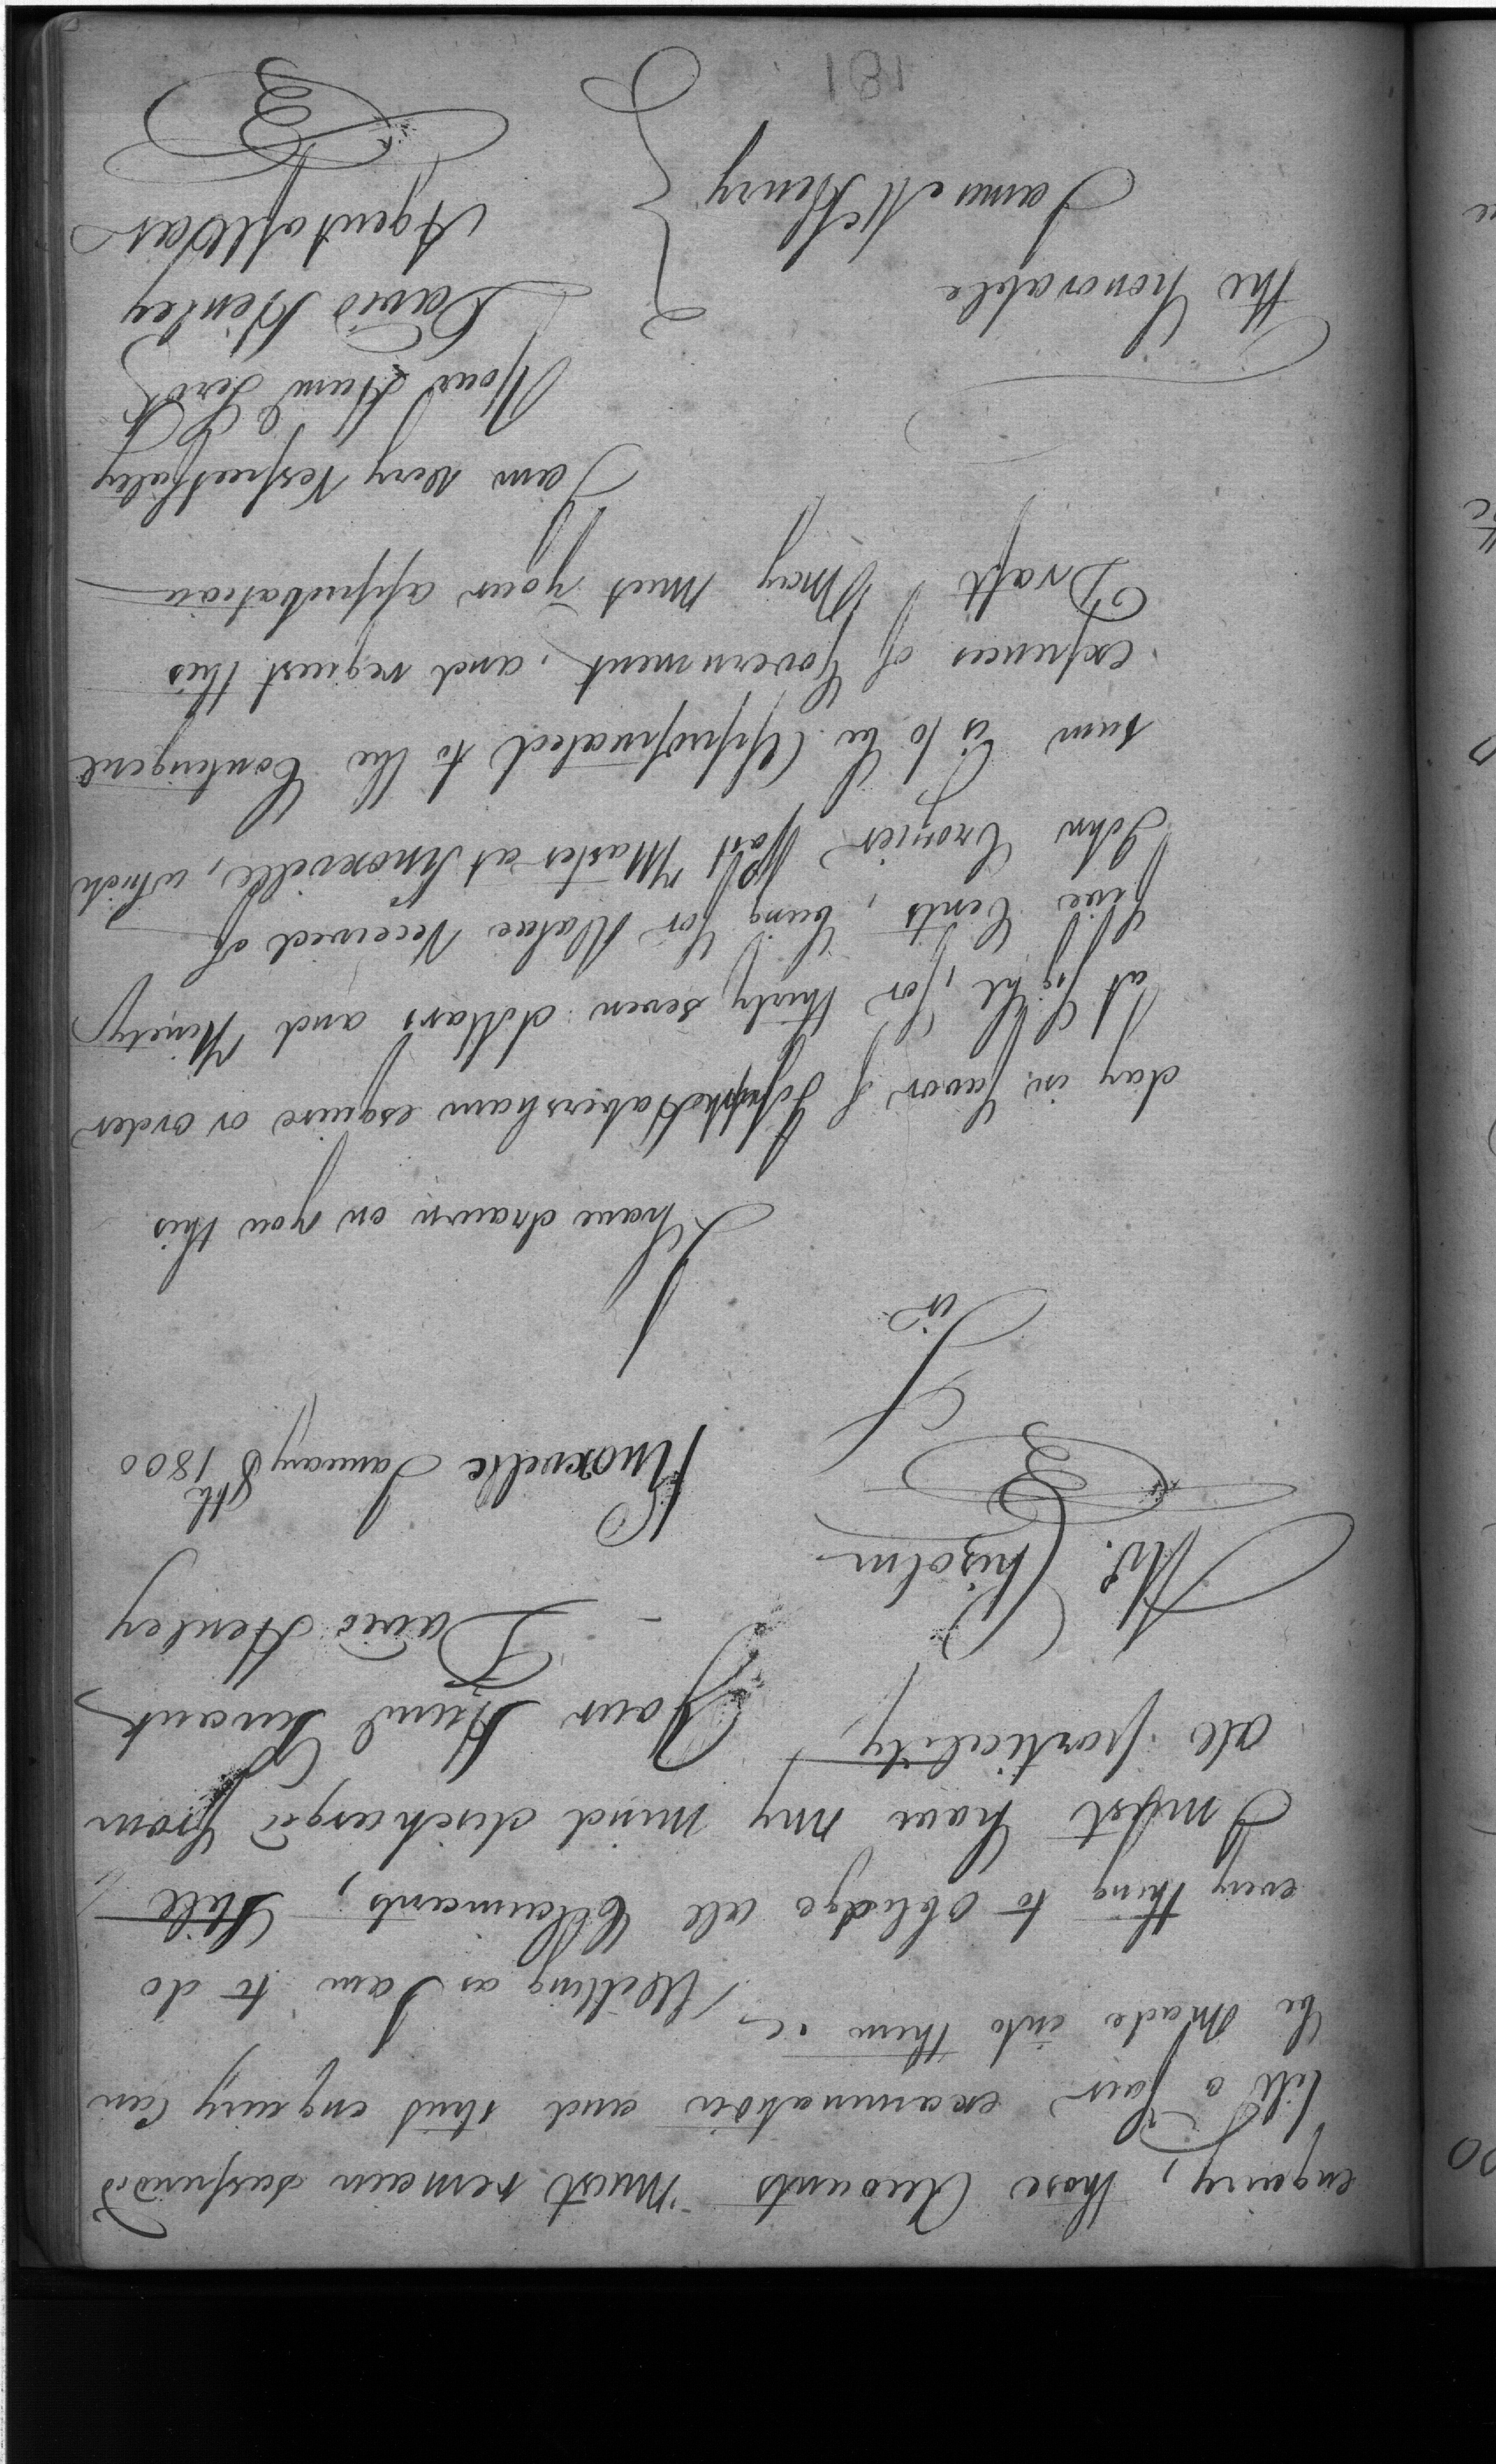 enquiry, those Accounts must remain suspended
till a fair examination and that enquiry Can
be made into them
Willing as I am to do
every thing to Oblidge all Claimants, Still
I must have my mind discharged from
all partiality,
Your Hum Servant
David Henley
Chisolm
Knoxville January 8th 1800
Sir
I have drawn on you this
day in favor of Joseph Habersham esquire or order
at Sight, for thirty seven dollars and Ninety
five Cents, being for Value Received of
John Crozier Post Master at Knoxville, which
sum is to be Appropriated to the Contingent
expences of Government, and request this
Draft May meet your approbation
I am very Respectfuly
Your Hum Servt
David Henley
Agent of War
The Honorable
James McHenry
181